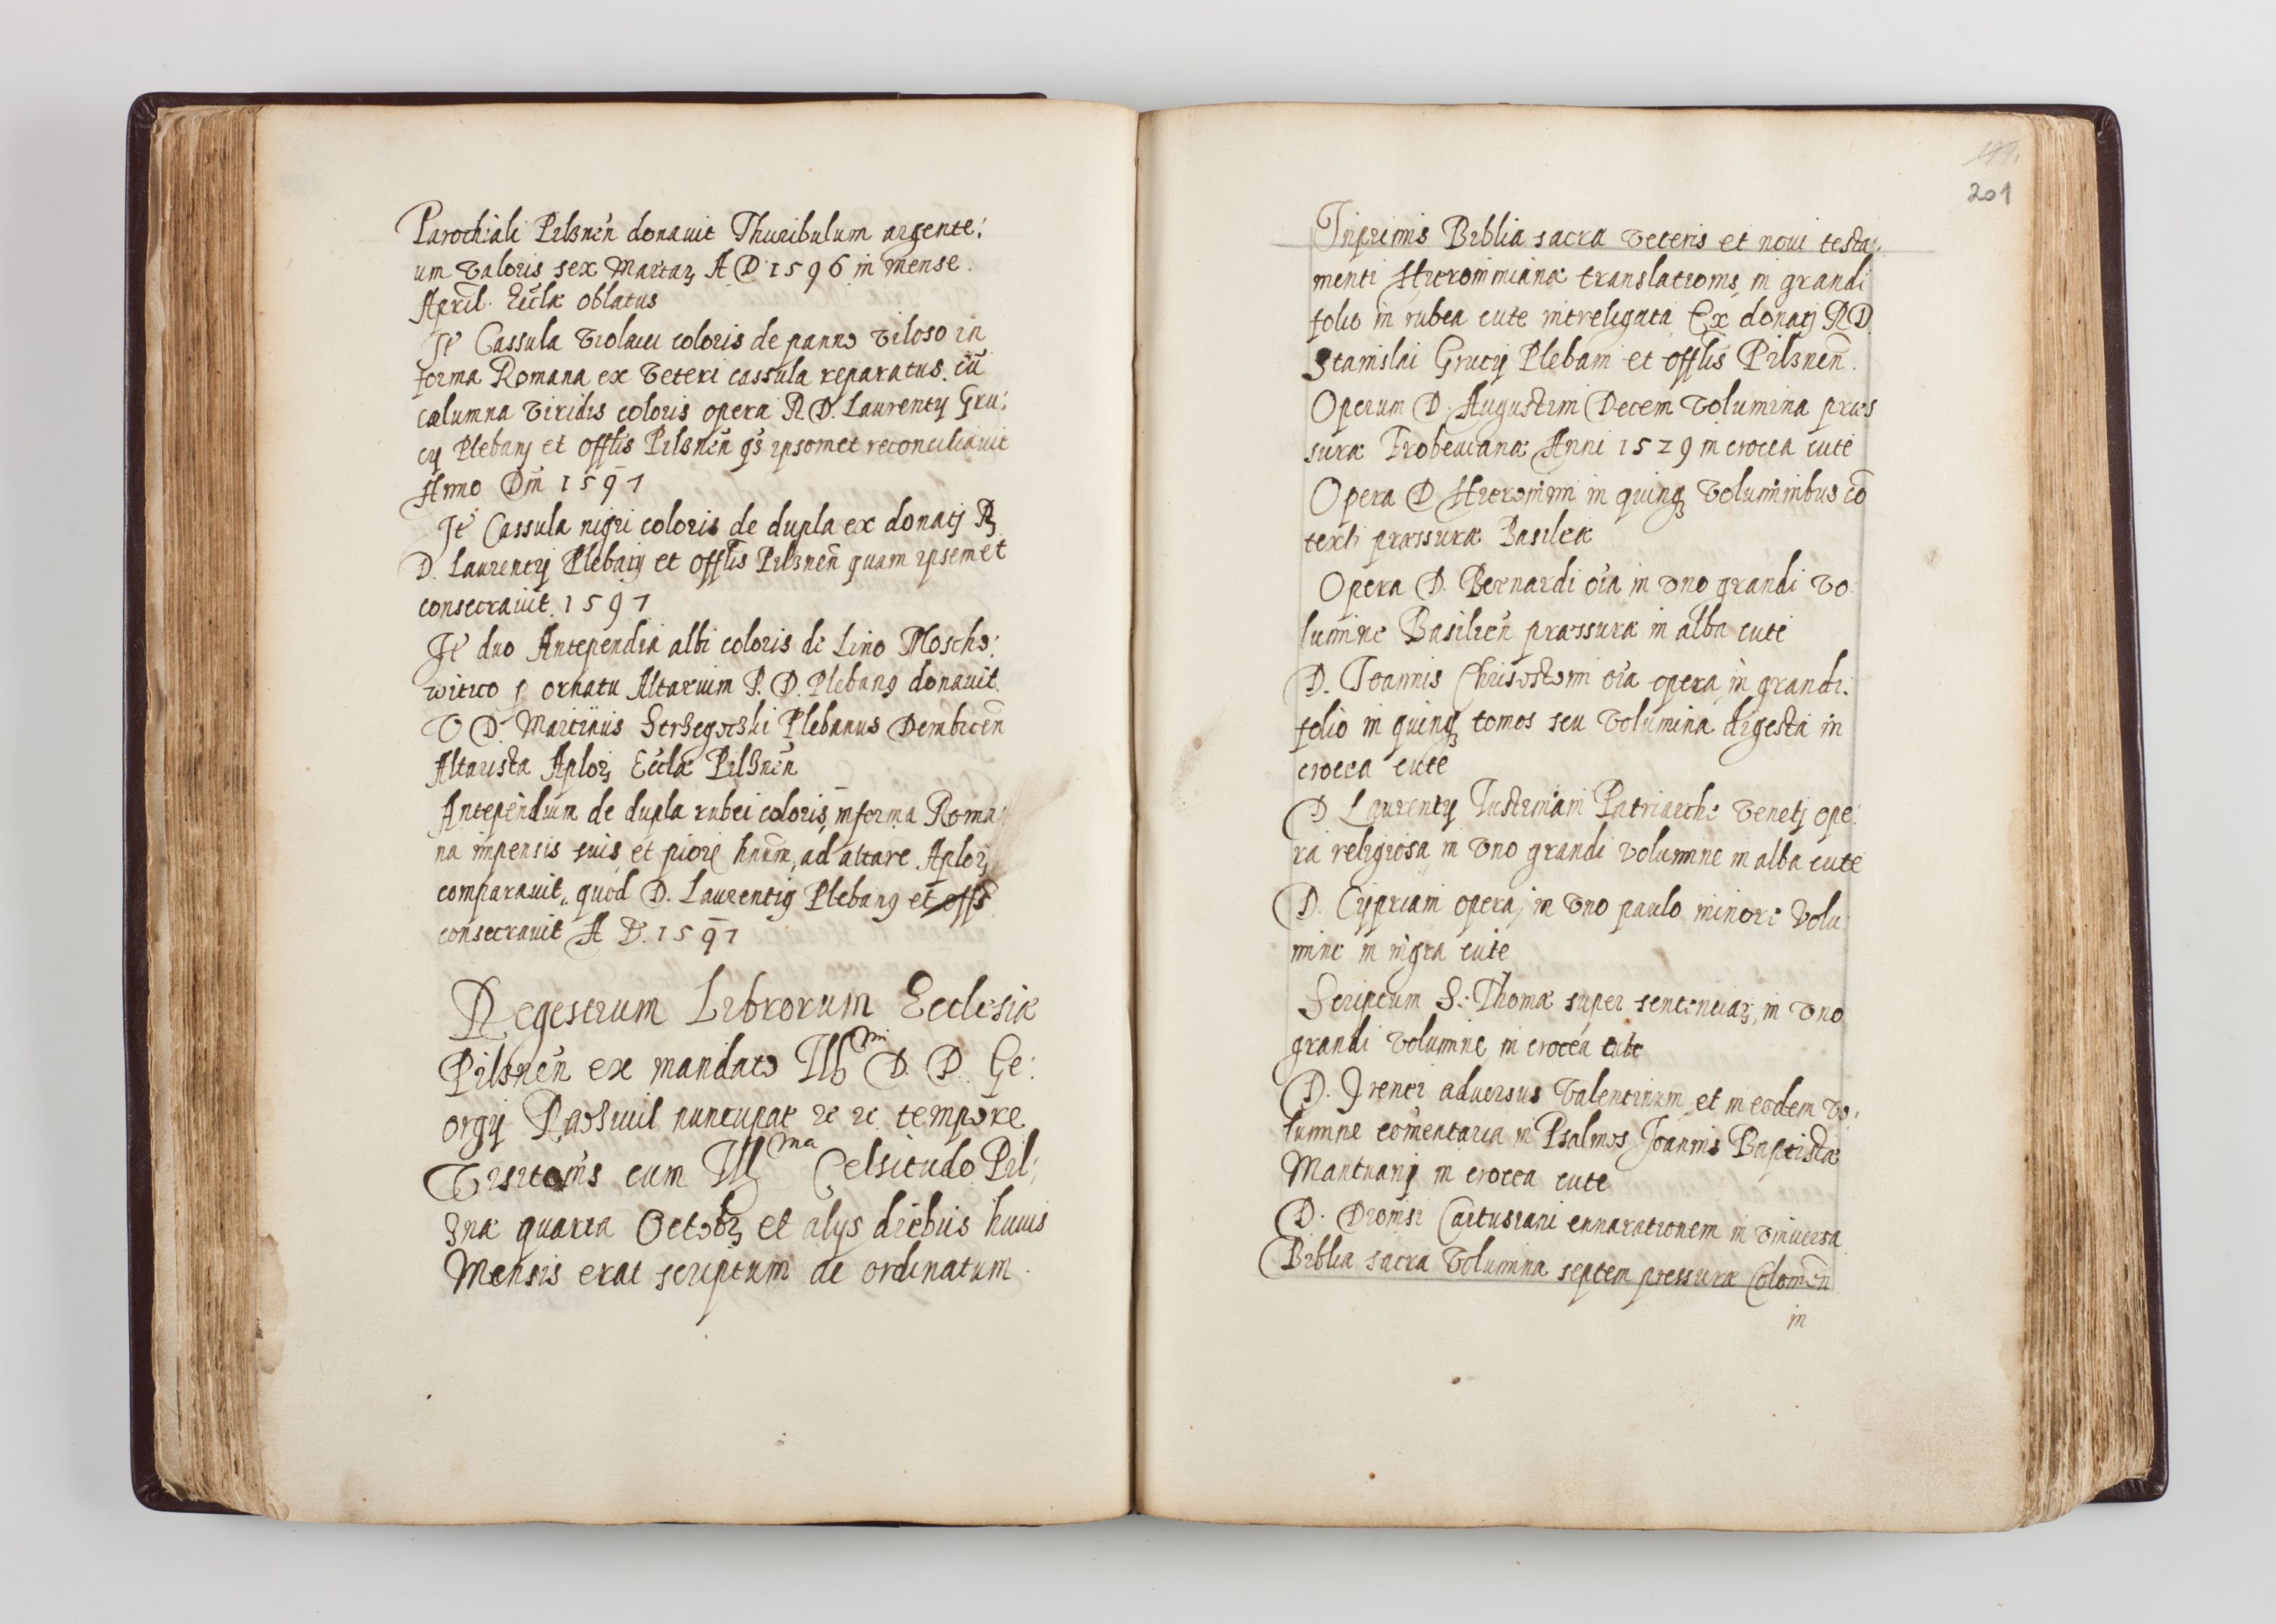 Parochiali Pilznen̄ donauit Thuribulum argente:
um valoris sex Martaꝝ A D 1596 in mense.
April. Eccłæ oblatus
Jt̄ Cassula violacei coloris de panno viloso in
forma Romana ex veteri cassula reparatus. cū
columna viridis coloris opera R D. Laurentÿ Gru:
cÿ Plebanj et offłis Pilznen̄ qs ipsomet reconciliauit
Anno Dn̄i 1597
Jt̄ Cassula nigri coloris de dupla ex donatj R
D. Laurentÿ Plebanj et offłis Pilznen̄ quam ipsemet
consecrauit. 1597
Jt̄ duo Antependia albi coloris de Lino Moscho:
witico ꝑ ornatu Altarium R. D. Plebanꝰ donauit.
V D. Martinus Plebanus Dembicen̄
Altarista Aploꝝ Eccłæ Pilznen̄
Antepēdium de dupla rubei coloris, in forma Roma:
na impensis suis et pioꝝ hn̄ium, ad altare Aploꝝ
comparauit, quod D. Laurentiꝰ Plebanꝰ et offs
consecrauit A D. 1597
Regestrum Librorum Ecclesiæ
Pilznen̄ ex mandato Ill mi D. D. Ge:
orgÿ Razwil nuncupat ꝛc ꝛc tempore
Visitōnis cum Ill ma Celsitudo Pil:
znæ quarta Octobꝝ et alÿs diebus huius
Mensis erat scriptum ac ordinatum.
199.
201
Inprimis Biblia sacra veteris et noui testa:
menti Hieronimianæ translationis, in grandi
folio in rubea cute intreligata Ex donatj R D
Stanislai Grucÿ Plebani et offłis Pilznen̄.
Operum D. Augustini Decem volumina præs
suræ Frobeuianæ Anni 1529 in crocea cute
Opera D Hieronimi in quinqꝫ voluminibus cō
texti præssuræ Basileæ
Opera D. Bernardi oīa in vno grandi vo:
lumine Basilien̄ præssuræ in alba cute
D. Joannis Chrisostomi oīa opera in grandi:
folio in quinqꝫ tomos seu volumina digesta in
crocea cute
D Laurentÿ Justiniani Patriarchę venetj ope:
ra religiosa in vno grandi volumine in alba cute
D. Cypriani opera, in vno paulo minore volu
mine in nigra cute
Scriptum S. Thomæ super sentenciaꝝ, in vno
grandi volumine, in crocea cute
D. Irenei aduersus valentinum, et in eodem vo:
lumine comentaria in Psalmos Joannis Baptistæ
Mantuanj in crocea cute
D. Dionisi Cartusiani ennarationem in vniuersa
Biblia sacra volumina septem pressuræ Colonien̄
in